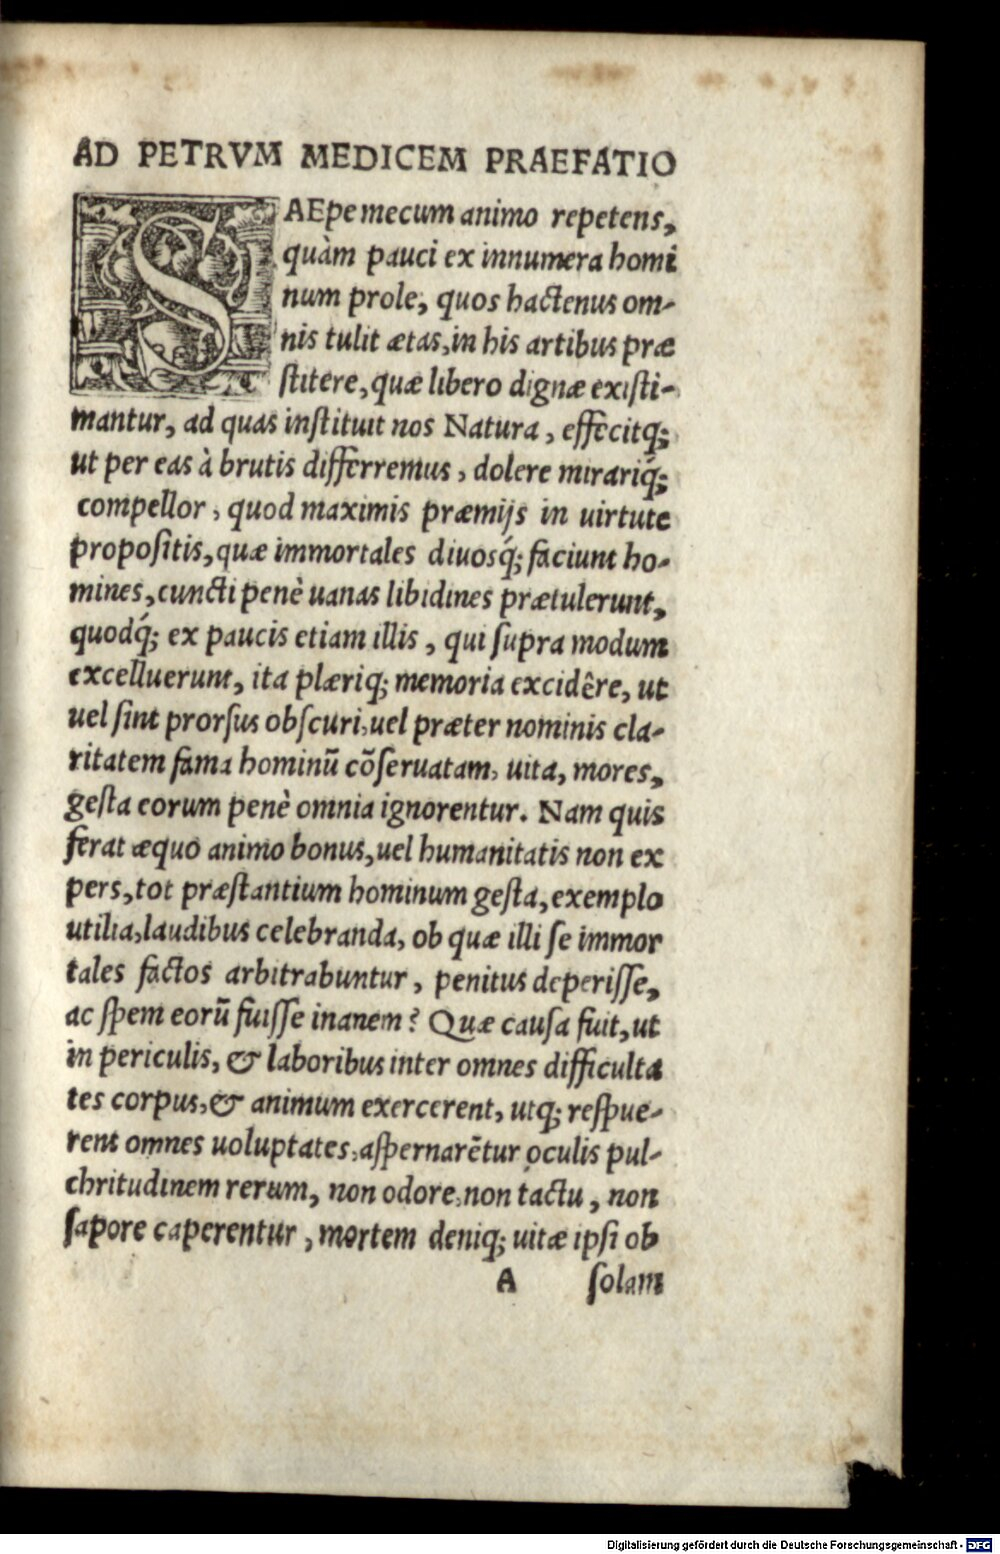 AD PETRVM MEDICEM PRAEFATIO
SAEpe mecum animo repetens,
quàm pauci ex innumera homi
num prole, quos hactenus om-
nis tulit ætas, in his artibus præ
ſtitêre, quæ libero dignæ exiſti-
mantur, ad quas inſtituit nos Natura, effecitq́;
ut per eas à brutis differremus, dolere mirariq́;
compellor, quod maximis præmijs in uirtute
propoſitis, quæ immortales diuosq́; faciunt ho-
mines, cuncti penè uanas libidines prætulerunt,
quodq́; ex paucis etiam illis, qui ſupra modum
excelluerunt, ita plæriq; memoria excidêre, ut
uel ſint prorſus obſcuri, uel præter nominis cla-
ritatem fama hominũ cõſeruatam, uita, mores,
geſta eorum penè omnia ignorentur. Nam quis
ferat æquo animo bonus, uel humanitatis non ex
pers, tot præſtantium hominum geſta, exemplo
utilia, laudibus celebranda, ob quæ illi ſe immor
tales factos arbitrabuntur, penitus deperiſſe,
ac ſpem eorũ fuiſſe inanem? Quæ cauſa fuit, ut
in periculis, & laboribus inter omnes difficulta
tes corpus, & animum exercerent, utq; reſpue-
rent omnes uoluptates, aſpernarẽtur oculis pul-
chritudinem rerum, non odore, non tactu, non
ſapore caperentur, mortem deniq; uitæ ipſi ob
A ſolam
Digitalisierung gefördert durch die Deutsche Forschungsgemeinschaft - DFG